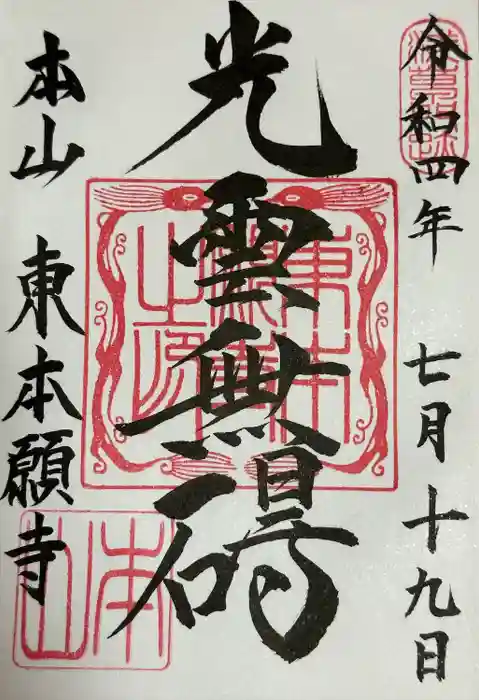 令和四年 七月十九日
光雲無碍
本山 東本願寺
東本願寺之印
本山